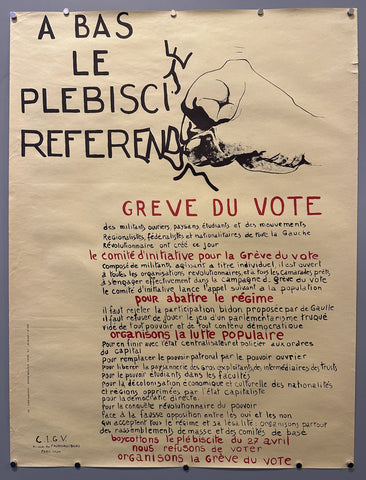 A BAS
LE
PLEBISCI
REFEREND
GREVE DU VOTE
des militants, ouvriers, paysans, étudiants et des mouvements
Régionalistes, fédéralistes et nationalitaires de toute la Gauche
Révolutionnaire ont créé ce jour
le comité d'initiative pour la Grève du vote
Composé de militants agissant à titre individuel, il est ouvert
à toutes les organisations révolutionnaires, et à tous les camarades prêts
à s'engager effectivement dans la campagne de Grève du vote
le comité d'initiative lance l'appel suivant à la population
pour abattre le régime
il faut rejeter la participation bidon proposée par de Gaulle
il faut refuser de jouer le jeu d'un parlementarisme truqué
vide de tout pouvoir et de tout contenu démocratique
organisons la lutte populaire
Pour en finir avec l'état centralisateur et policier aux ordres
du capital
pour remplacer le pouvoir patronal par le pouvoir ouvrier
Pour libérer la paysannerie des gros exploitants, des intermédiaires des trusts
Pour le pouvoir étudiant dans les facultés
Pour la décolonisation économique et culturelle des nationalités
et régions opprimées par l'état capitaliste
pour la démocratie directe.
Pour la conquête révolutionnaire du pouvoir
Face à la fausse opposition entre les oui et les non
qui acceptent tous le régime et sa légalité: organisons partout
des rassemblements de masse et des comités de base
boycottons le plébiscite du 27 avril
nous refusons de voter
organisons la Grève du vote
C.I.G.V.
PARIS